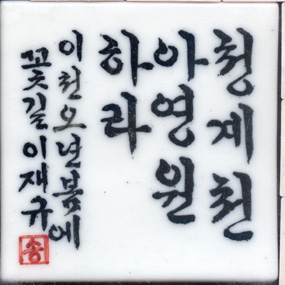 청계천
아영원
하라
이천오년봄에
꽃길이재규
송